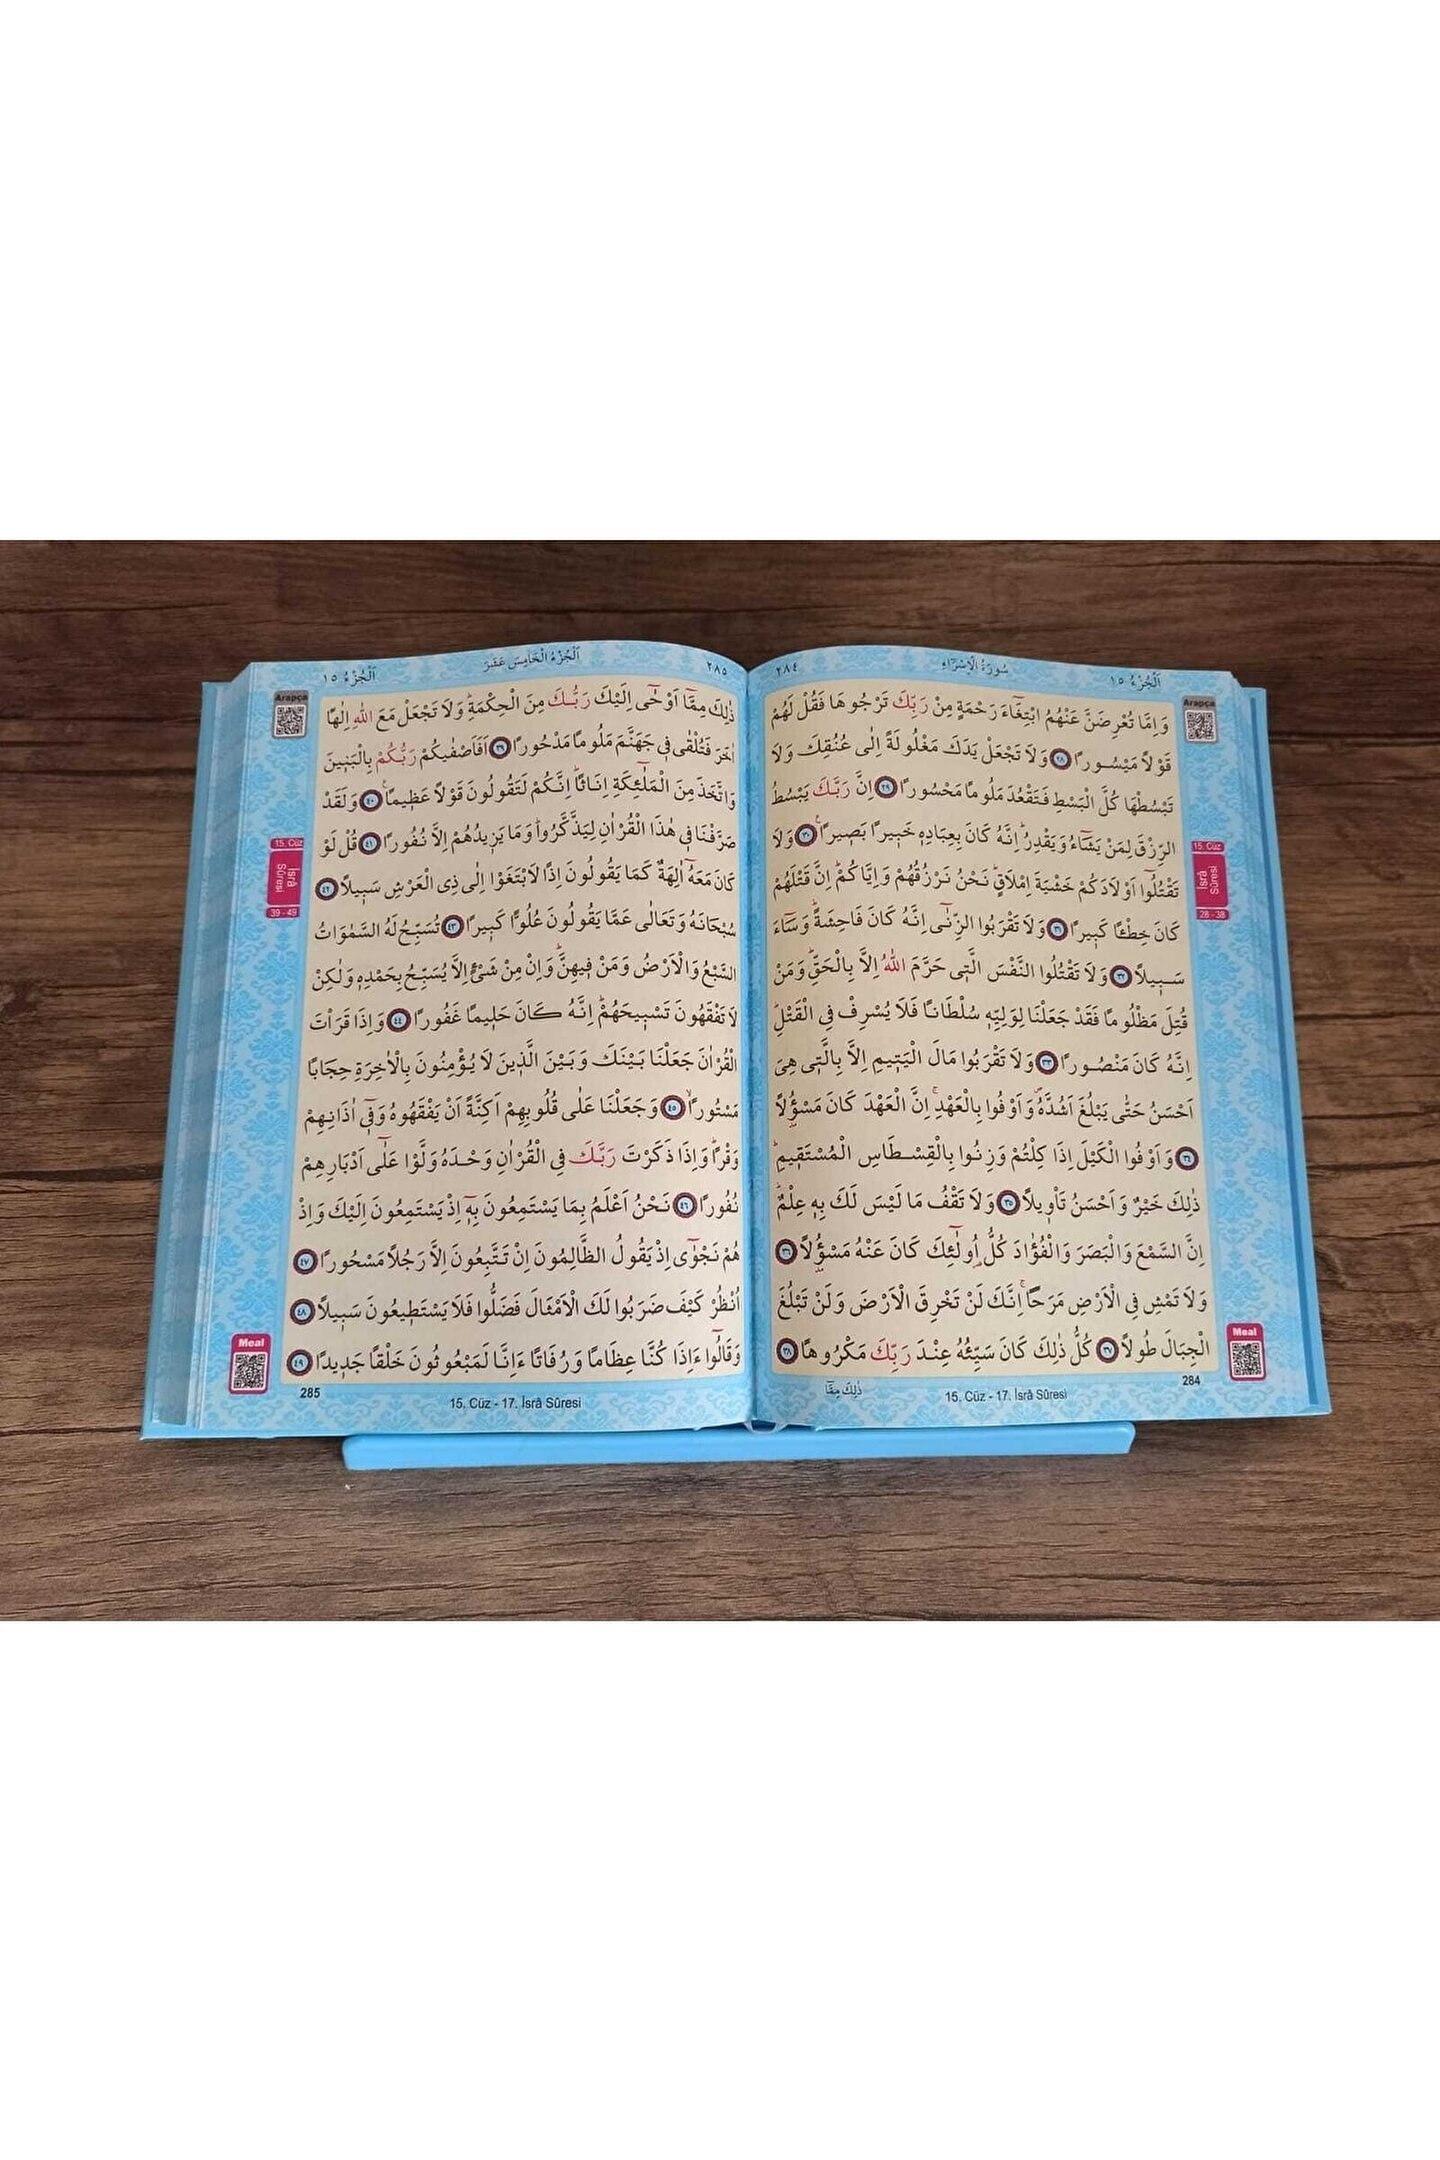 اَلْجُزْءُ ١٥
سُورَةُ الْاِسْرَٓاءِ
٢٨٤
Arapça
وَاِمَّا تُعْرِضَنَّ عَنْهُمُ ابْتِغَٓاءَ رَحْمَةٍ مِنْ رَبِّكَ تَرْجُوهَا فَقُلْ لَهُمْ
قَوْلًا مَيْسُورًا ﴿٢٨﴾ وَلَا تَجْعَلْ يَدَكَ مَغْلُولَةً اِلٰى عُنُقِكَ وَلَا
تَبْسُطْهَا كُلَّ الْبَسْطِ فَتَقْعُدَ مَلُومًا مَحْسُورًا ﴿٢٩﴾ اِنَّ رَبَّكَ يَبْسُطُ
الرِّزْقَ لِمَنْ يَشَٓاءُ وَيَقْدِرُۜ اِنَّهُ كَانَ بِعِبَادِه۪ خَب۪يرًا بَص۪يرًا۟ ﴿٣٠﴾ وَلَا
تَقْتُلُٓوا اَوْلَادَكُمْ خَشْيَةَ اِمْلَاقٍۜ نَحْنُ نَرْزُقُهُمْ وَاِيَّاكُمْۜ اِنَّ قَتْلَهُمْ
كَانَ خِطْـًٔا كَب۪يرًا ﴿٣١﴾ وَلَا تَقْرَبُوا الزِّنٰٓى اِنَّهُ كَانَ فَاحِشَةًۜ وَسَٓاءَ
سَب۪يلًا ﴿٣٢﴾ وَلَا تَقْتُلُوا النَّفْسَ الَّت۪ي حَرَّمَ اللّٰهُ اِلَّا بِالْحَقِّۜ وَمَنْ
قُتِلَ مَظْلُومًا فَقَدْ جَعَلْنَا لِوَلِيِّه۪ سُلْطَانًا فَلَا يُسْرِفْ فِي الْقَتْلِۜ
اِنَّهُ كَانَ مَنْصُورًا ﴿٣٣﴾ وَلَا تَقْرَبُوا مَالَ الْيَت۪يمِ اِلَّا بِالَّت۪ي هِيَ
اَحْسَنُ حَتّٰى يَبْلُغَ اَشُدَّهُۖ وَاَوْفُوا بِالْعَهْدِۚ اِنَّ الْعَهْدَ كَانَ مَسْؤُ۫لًا
﴿٣٤﴾ وَاَوْفُوا الْكَيْلَ اِذَا كِلْتُمْ وَزِنُوا بِالْقِسْطَاسِ الْمُسْتَق۪يمِۜ
ذٰلِكَ خَيْرٌ وَاَحْسَنُ تَأْو۪يلًا ﴿٣٥﴾ وَلَا تَقْفُ مَا لَيْسَ لَكَ بِه۪ عِلْمٌۜ
اِنَّ السَّمْعَ وَالْبَصَرَ وَالْفُؤٰادَ كُلُّ اُو۬لٰٓئِكَ كَانَ عَنْهُ مَسْؤُ۫لًا ﴿٣٦﴾
وَلَا تَمْشِ فِي الْاَرْضِ مَرَحًاۚ اِنَّكَ لَنْ تَخْرِقَ الْاَرْضَ وَلَنْ تَبْلُغَ
الْجِبَالَ طُولًا ﴿٣٧﴾ كُلُّ ذٰلِكَ كَانَ سَيِّئُهُ عِنْدَ رَبِّكَ مَكْرُوهًا ﴿٣٨﴾
15. Cüz
İsrâ
Sûresi
28 - 38
Meal
284
15. Cüz - 17. İsrâ Sûresi
ذٰلِكَ مِمَّٓا
٢٨٥
اَلْجُزْءُ الْخَامِسَ عَشَرَ
اَلْجُزْءُ ١٥
Arapça
ذٰلِكَ مِمَّٓا اَوْحٰٓى اِلَيْكَ رَبُّكَ مِنَ الْحِكْمَةِۜ وَلَا تَجْعَلْ مَعَ اللّٰهِ اِلٰهًا
اٰخَرَ فَتُلْقٰى ف۪ي جَهَنَّمَ مَلُومًا مَدْحُورًا ﴿٣٩﴾ اَفَاَصْفٰيكُمْ رَبُّكُمْ بِالْبَن۪ينَ
وَاتَّخَذَ مِنَ الْمَلٰٓئِكَةِ اِنَاثًاۜ اِنَّكُمْ لَتَقُولُونَ قَوْلًا عَظ۪يمًا۟ ﴿٤٠﴾ وَلَقَدْ
صَرَّفْنَا ف۪ي هٰذَا الْقُرْاٰنِ لِيَذَّكَّرُواۜ وَمَا يَز۪يدُهُمْ اِلَّا نُفُورًا ﴿٤١﴾ قُلْ لَوْ
كَانَ مَعَهُٓ اٰلِهَةٌ كَمَا يَقُولُونَ اِذًا لَابْتَغَوْا اِلٰى ذِي الْعَرْشِ سَب۪يلًا ﴿٤٢﴾
سُبْحَانَهُ وَتَعَالٰى عَمَّا يَقُولُونَ عُلُوًّا كَب۪يرًا ﴿٤٣﴾ تُسَبِّحُ لَهُ السَّمٰوَاتُ
السَّبْعُ وَالْاَرْضُ وَمَنْ ف۪يهِنَّۜ وَاِنْ مِنْ شَيْءٍ اِلَّا يُسَبِّحُ بِحَمْدِه۪ وَلٰكِنْ
لَا تَفْقَهُونَ تَسْب۪يحَهُمْۜ اِنَّهُ كَانَ حَل۪يمًا غَفُورًا ﴿٤٤﴾ وَاِذَا قَرَأْتَ
الْقُرْاٰنَ جَعَلْنَا بَيْنَكَ وَبَيْنَ الَّذ۪ينَ لَا يُؤْمِنُونَ بِالْاٰخِرَةِ حِجَابًا
مَسْتُورًاۙ ﴿٤٥﴾ وَجَعَلْنَا عَلٰى قُلُوبِهِمْ اَكِنَّةً اَنْ يَفْقَهُوهُ وَف۪ٓي اٰذَانِهِمْ
وَقْرًاۜ وَاِذَا ذَكَرْتَ رَبَّكَ فِي الْقُرْاٰنِ وَحْدَهُ وَلَّوْا عَلٰٓى اَدْبَارِهِمْ
نُفُورًا ﴿٤٦﴾ نَحْنُ اَعْلَمُ بِمَا يَسْتَمِعُونَ بِه۪ٓ اِذْ يَسْتَمِعُونَ اِلَيْكَ وَاِذْ
هُمْ نَجْوٰٓى اِذْ يَقُولُ الظَّالِمُونَ اِنْ تَتَّبِعُونَ اِلَّا رَجُلًا مَسْحُورًا ﴿٤٧﴾
اُنْظُرْ كَيْفَ ضَرَبُوا لَكَ الْاَمْثَالَ فَضَلُّوا فَلَا يَسْتَط۪يعُونَ سَب۪يلًا ﴿٤٨﴾
وَقَالُٓوا ءَاِذَا كُنَّا عِظَامًا وَرُفَاتًا ءَاِنَّا لَمَبْعُوثُونَ خَلْقًا جَد۪يدًا ﴿٤٩﴾
15. Cüz
İsrâ
Sûresi
39 - 49
Meal
285
15. Cüz - 17. İsrâ Sûresi